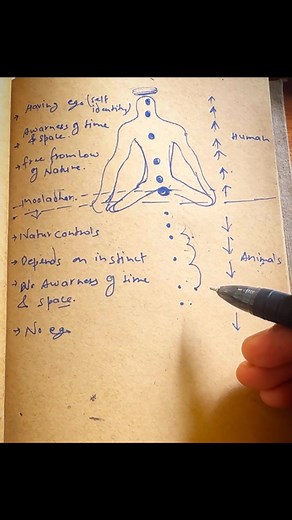 → Having ego (self identity)
Awarness of time
→ & space.
→ free from Law
of Nature.
Human
→ mooladhar.
→ Natur controls
→ Depends on instinct
Animals
→ No Awarness of time
& space.
→ No ego